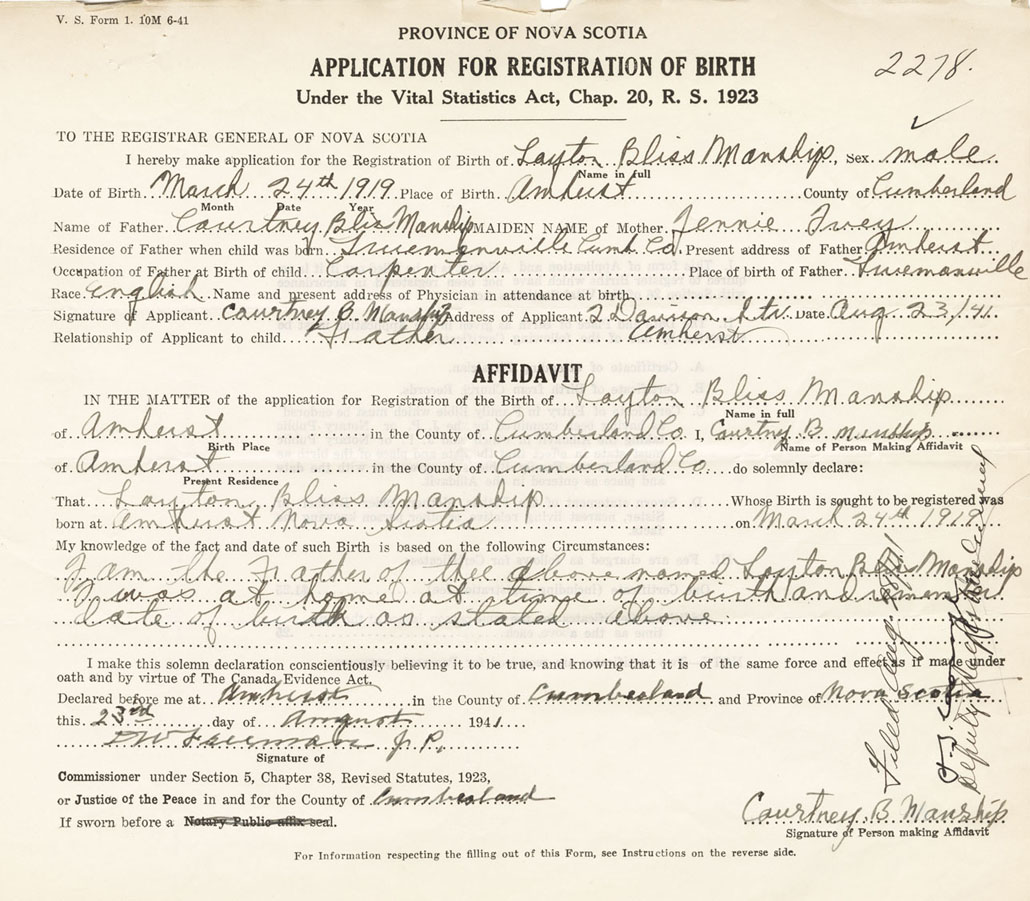 V. S. Form 1. 10M 6-41
PROVINCE OF NOVA SCOTIA
APPLICATION FOR REGISTRATION OF BIRTH
2278.
Under the Vital Statistics Act, Chap. 20, R. S. 1923
TO THE REGISTRAR GENERAL OF NOVA SCOTIA
I hereby make application for the Registration of Birth of Layton Bliss Manship, Sex male
Name in full
Date of Birth March 24th 1919. Place of Birth Amherst County of Cumberland
Month Date Year
Name of Father Courtney Bliss Manship MAIDEN NAME of Mother Jennie
Residence of Father when child was born Truemanville Cumb Co. Present address of Father Amherst
Occupation of Father at Birth of child Carpenter Place of birth of Father Truemanville
Race English Name and present address of Physician in attendance at birth
Signature of Applicant Courtney B. Manship Address of Applicant 2 Davison Date Aug 23/41
Relationship of Applicant to child Father Amherst
AFFIDAVIT
IN THE MATTER of the application for Registration of the Birth of Layton Bliss Manship
Name in full
of Amherst in the County of Cumberland Co I, Courtney B. Manship
Birth Place Name of Person Making Affidavit
of Amherst in the County of Cumberland Co do solemnly declare:
Present Residence
That Layton Bliss Manship Whose Birth is sought to be registered was
born at Amherst Nova Scotia on March 24th 1919
My knowledge of the fact and date of such Birth is based on the following Circumstances:
I am the Father of the above named Layton Bliss Manship
I was at home at time of birth and remember
date of birth as stated above
I make this solemn declaration conscientiously believing it to be true, and knowing that it is of the same force and effect as if made under
oath and by virtue of The Canada Evidence Act.
Declared before me at Amherst in the County of Cumberland and Province of Nova Scotia
this 23rd day of August 1941
J.P.
Signature of
Commissioner under Section 5, Chapter 38, Revised Statutes, 1923,
or Justice of the Peace in and for the County of Cumberland
If sworn before a Notary Public affix seal.
Courtney B. Manship
Signature of Person making Affidavit
For Information respecting the filling out of this Form, see Instructions on the reverse side.
Filed Aug
Deputy Registrar General